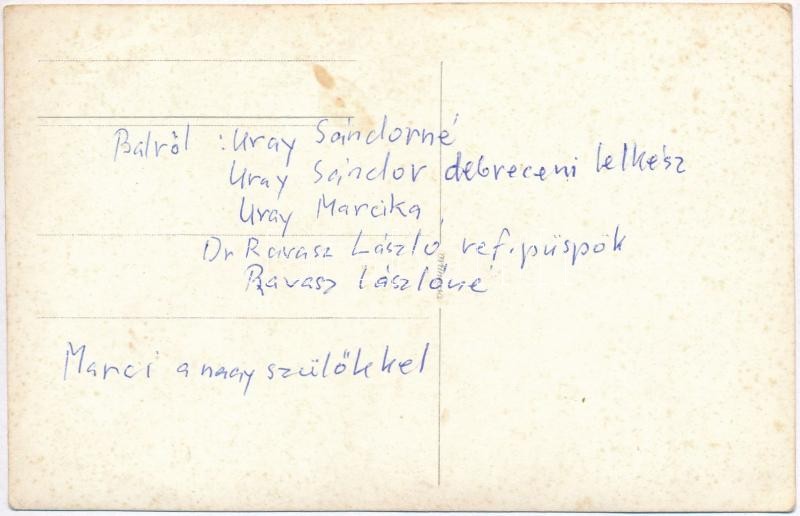 Balról : Uray Sándorné
Uray Sándor debreceni lelkész
Uray Marcika,
Dr Ravasz László ref. püspök
Ravasz Lászlóné
Marci a nagyszülőkkel